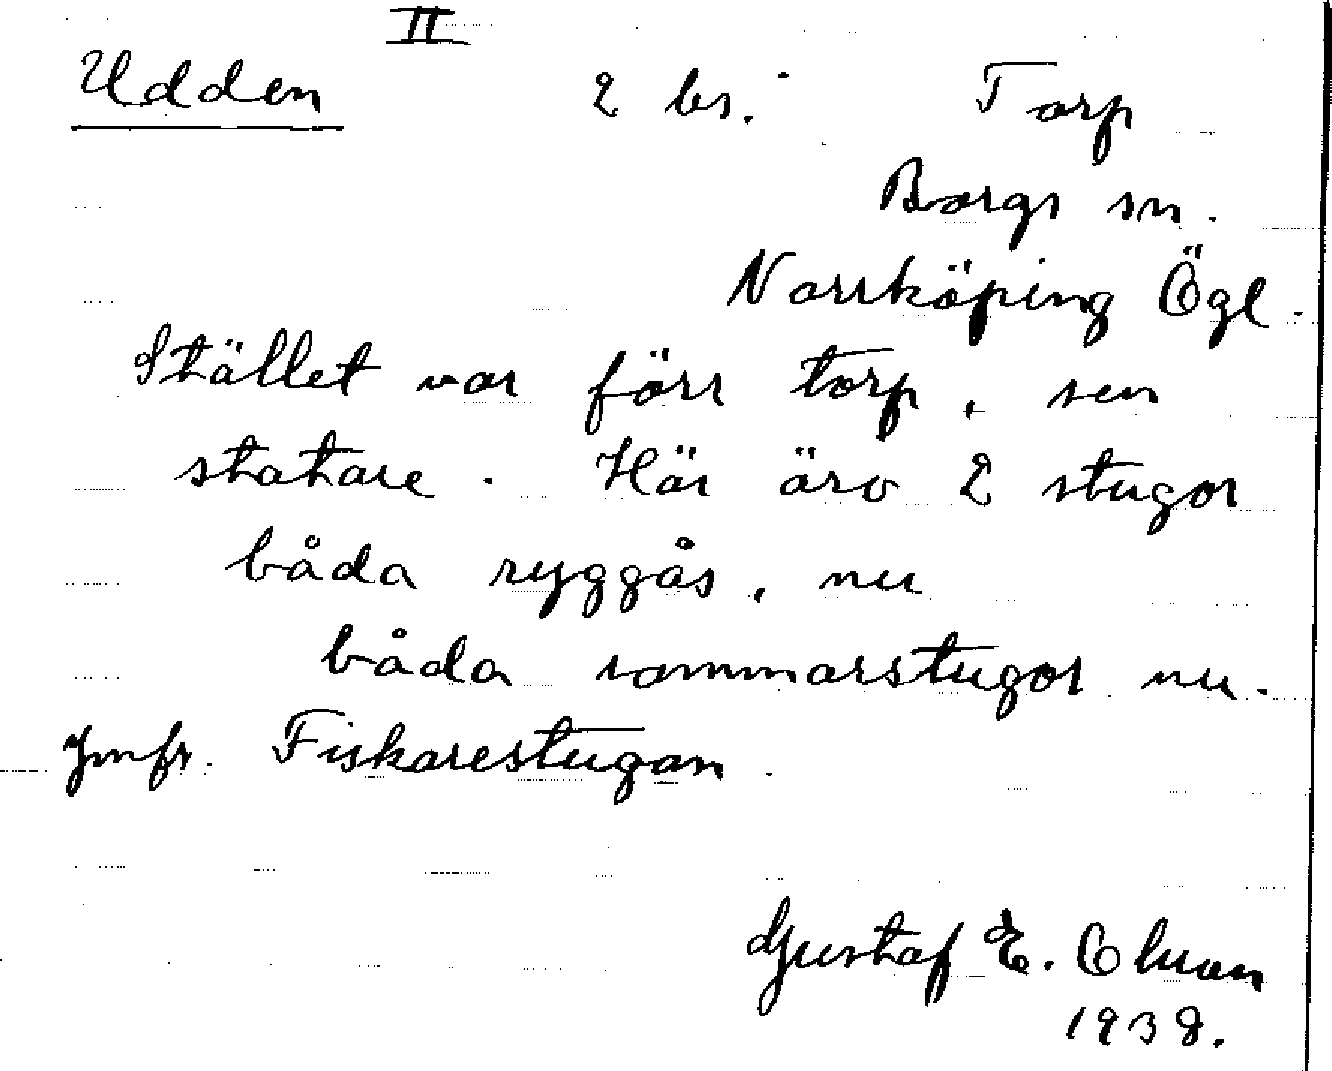 II
Udden 2 br. Torp
Borgs sn.
Norrköping Ögl.
Stället var förr torp, sen
statare. Här äro 2 stugor
båda ryggås, nu
båda sommarstugor nu.
Jmfr. Fiskarestugan.
Gustaf E. Olsson
1938.